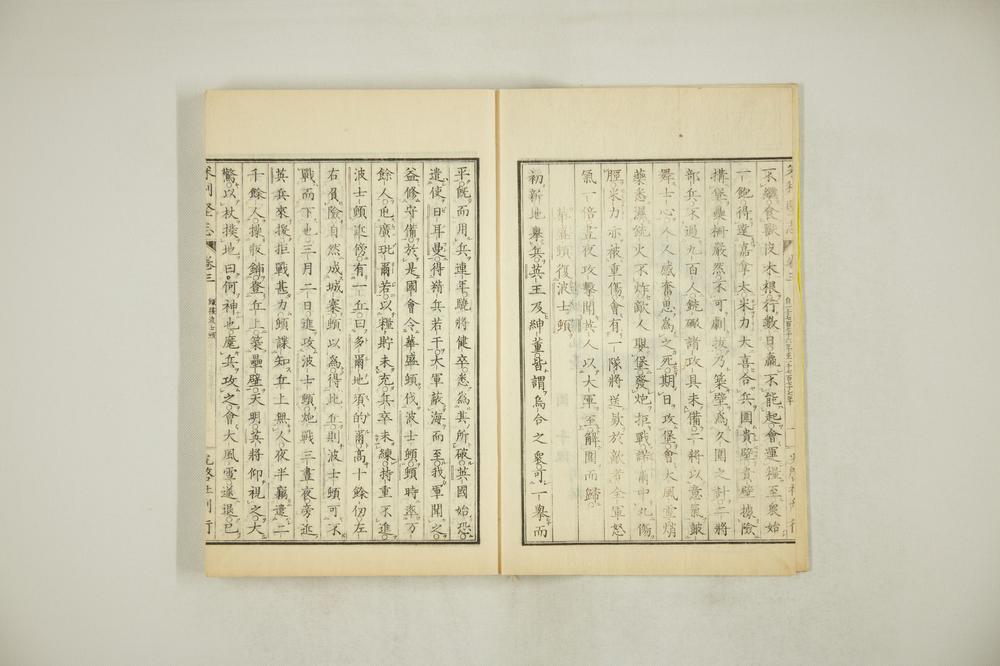 不繼食獸皮木根行數日羸不能起會運糧至衆始
一飽得達嘉拿太米力大喜合兵圍貴壁貴壁據險
構堡輿柵嚴然不可劇拔乃築壁爲久圍之計二將
部兵不過九百人銃礮諸攻具未備二將以意氣皷
舞士心人人感奮思爲之死期日攻堡會大風雪焇
藥悉濕銃火不炸敵人乘堡發炮拒戰謨甫中丸傷
腰米力亦被重傷會有一隊將送欵於敵者全軍怒
氣一倍晝夜攻擊聞英人以大軍至解圍而歸
華盛頓復波士頓
初新地擧兵英王及紳董皆謂烏合之衆可一擧而
平既而用兵連年驍將健卒悉爲其所破英國始恐
遣使日耳曼得精兵若干大軍蔽海而至我軍聞之
益修守備於是國會令華盛頓伐波士頓頓時率万
餘人屯廣玭爾若以糧貯未充兵卒未練持重不進
波士頓港傍有一丘曰多爾地須的爾高十餘仞左
右負險自然成城寨頓以爲得此丘則波士頓可不
戰而下也三月二日進攻波士頓炮戰三晝夜旁近
英兵來援拒戰甚力頓諜知丘上無人夜半竊遣二
千餘人操畚鍤登丘上築壘壁天明英將仰視之大
驚以杖操地曰何神也麾兵攻之會大風雪遂退已
米利堅志 卷三